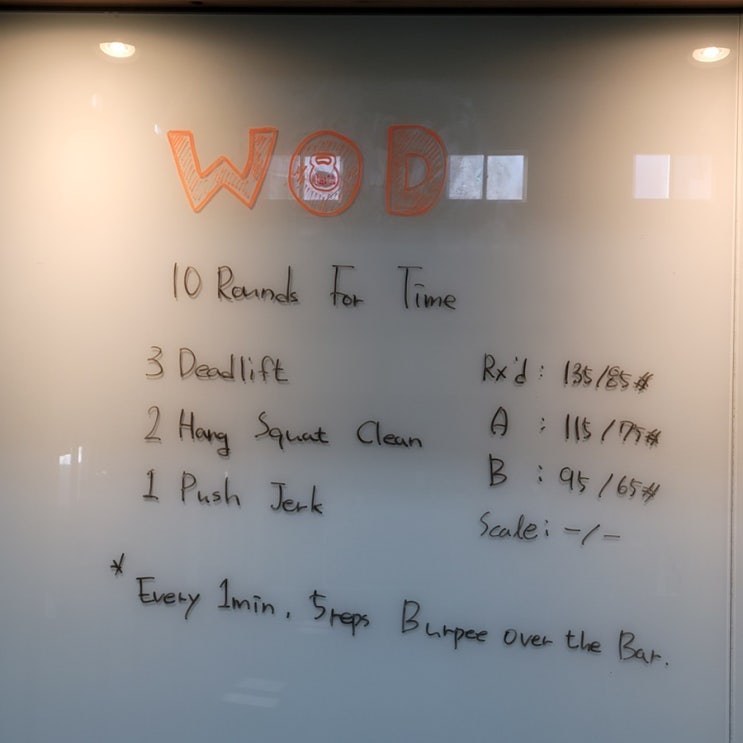 WOD
10 Rounds For Time
3 Deadlift
2 Hang Squat Clean
1 Push Jerk
Rx'd : 135/85#
A : 115/75#
B : 95/65#
Scale: -/-
* Every 1min, 5reps Burpee over the Bar.